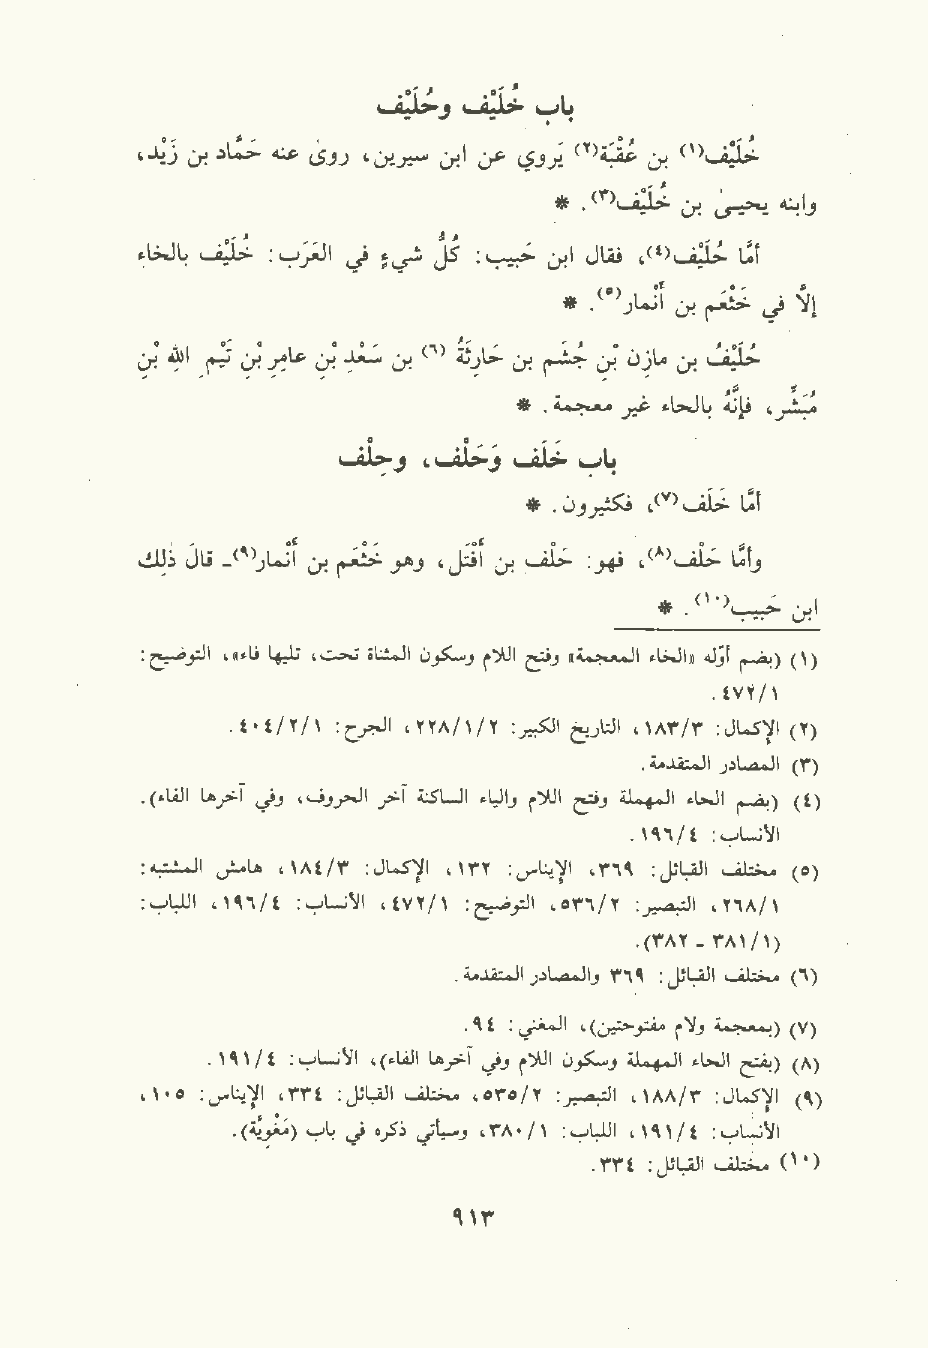 باب خُلَيْف وحُلَيْف
خُلَيْف(١) بن عُقْبَة(٢) يَروي عن ابن سيرين، روى عنه حَمَّاد بن زَيْد،
وابنه يحيىٰ بن خُلَيْف(٣). *
أمّا حُلَيْف(٤)، فقال ابن حَبيب: كُلُّ شيءٍ في العَرَب: خُلَيْف بالخاء
إلّا في خَثْعَم بن أَنْمار(٥). *
حُلَيْف بن مازِن بْن جُشَم بن حارِثَة(٦) بن سَعْد بْن عامِرِ بْن تَيْمِ الله بْن
مُبَشِّر، فإنَّهُ بالحاء غير معجمة. *
باب خَلَف وَحَلْف، وحِلْف
أمّا خَلَف(٧)، فكثيرون. *
وأمّا حَلْف(٨)، فهو: حَلْف بن أَفْتَل، وهو خَثْعَم بن أَنْمار(٩)ـ قالَ ذٰلك
ابن حَبيب(١٠). *
(١) (بضم أوّله «الخاء المعجمة» وفتح اللام وسكون المثناة تحت، تليها فاء»، التوضيح:
٤٧٢/١.
(٢) الإكمال: ١٨٣/٣، التاريخ الكبير: ٢٢٨/١/٢، الجرح: ٤٠٤/٢/١.
(٣) المصادر المتقدمة.
(٤) (بضم الحاء المهملة وفتح اللام والياء الساكنة آخر الحروف، وفي آخرها الفاء).
الأنساب: ١٩٦/٤.
(٥) مختلف القبائل: ٣٦٩، الإيناس: ١٣٢، الإكمال: ١٨٤/٣، هامش المشتبه:
٢٦٨/١، التبصير: ٥٣٦/٢، التوضيح: ٤٧٢/١، الأنساب: ١٩٦/٤، اللباب:
(٣٨١/١ - ٣٨٢).
(٦) مختلف القبائل: ٣٦٩ والمصادر المتقدمة.
(٧) (بمعجمة ولام مفتوحتين)، المغني: ٩٤.
(٨) (بفتح الحاء المهملة وسكون اللام وفي آخرها الفاء)، الأنساب: ١٩١/٤.
(٩) الإكمال: ١٨٨/٣، التبصير: ٥٣٥/٢، مختلف القبائل: ٣٣٤، الإيناس: ١٠٥،
الأنساب: ١٩١/٤، اللباب: ٣٨٠/١، وسيأتي ذكره في باب (مَغْوِيَّة).
(١٠) مختلف القبائل: ٣٣٤.
٩١٣